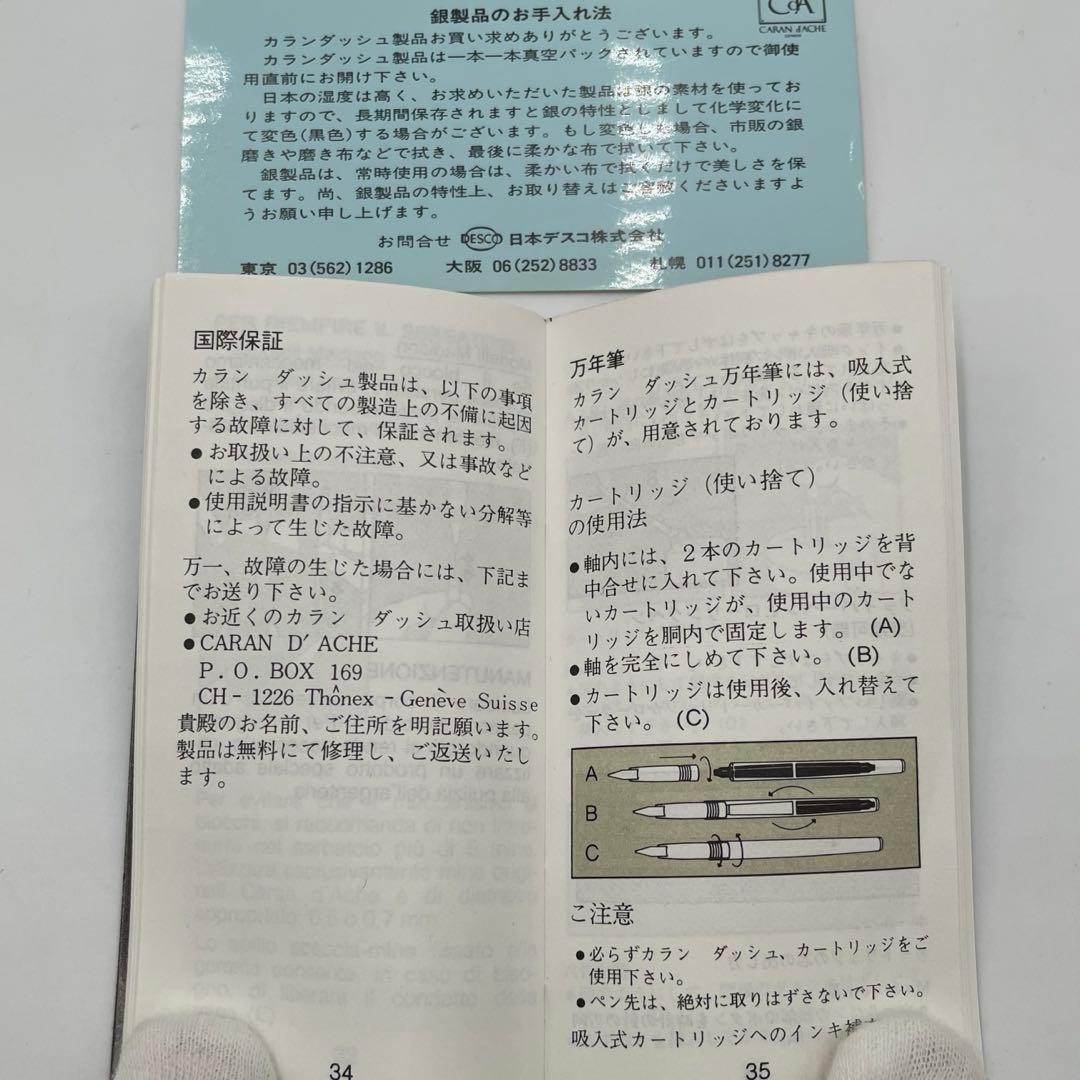 銀製品のお手入れ法
CdA
CARAN d'ACHE
カランダッシュ製品お買い求めありがとうございます。
カランダッシュ製品は一本一本真空パックされていますので御使
用直前にお開け下さい。
日本の湿度は高く、お求めいただいた製品は銀の素材を使ってお
りますので、長期間保存されますと銀の特性としまして化学変化に
て変色(黒色)する場合がございます。もし変色した場合、市販の銀
磨きや磨き布などで拭き、最後に柔かな布で拭いて下さい。
銀製品は、常時使用の場合は、柔かい布で拭くだけで美しさを保
てます。尚、銀製品の特性上、お取り替えはご容赦くださいますよ
うお願い申し上げます。
お問合せ DESCO 日本デスコ株式会社
東京 03(562)1286 大阪 06(252)8833 札幌 011(251)8277
国際保証
カラン ダッシュ製品は、以下の事項
を除き、すべての製造上の不備に起因
する故障に対して、保証されます。
●お取扱い上の不注意、又は事故など
による故障。
●使用説明書の指示に基かない分解等
によって生じた故障。
万一、故障の生じた場合には、下記ま
でお送り下さい。
●お近くのカラン ダッシュ取扱い店
●CARAN D' ACHE
P.O.BOX 169
CH-1226 Thônex-Genève Suisse
貴殿のお名前、ご住所を明記願います。
製品は無料にて修理し、ご返送いたし
ます。
34
万年筆
カラン ダッシュ万年筆には、吸入式
カートリッジとカートリッジ(使い捨
て)が、用意されております。
カートリッジ(使い捨て)
の使用法
●軸内には、2本のカートリッジを背
中合せに入れて下さい。使用中でな
いカートリッジが、使用中のカート
リッジを胴内で固定します。(A)
●軸を完全にしめて下さい。(B)
●カートリッジは使用後、入れ替えて
下さい。(C)
A
B
C
ご注意
●必らずカラン ダッシュ、カートリッジをご
使用下さい。
●ペン先は、絶対に取りはずさないで下さい。
吸入式カートリッジへのインキ補
35